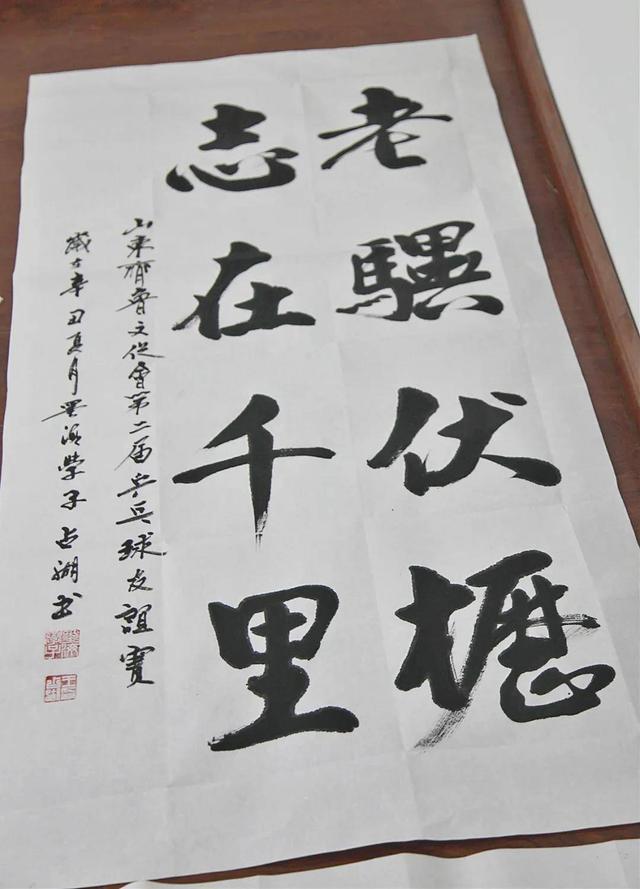 老驥伏櫪
志在千里
山東齊魯文促會第二届乒乓球友誼賽
歲辛丑夏月墨學子占湖书